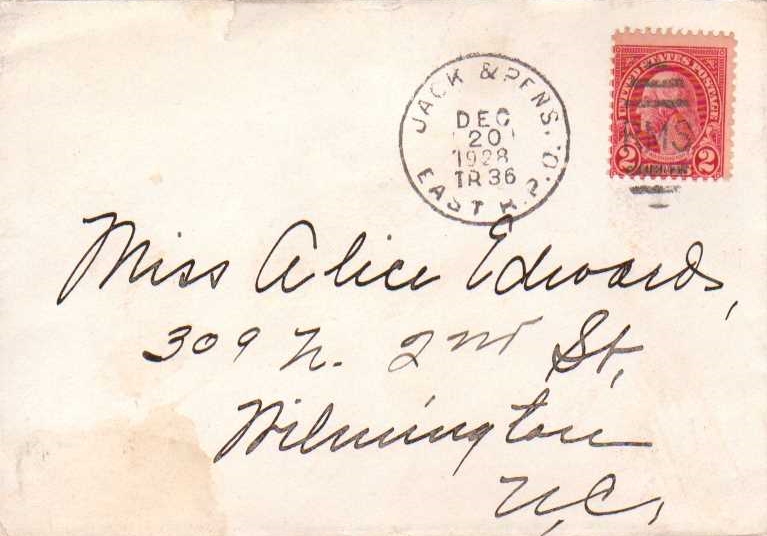 JACK. & PENS.
DEC
20
1928
TR 36
EAST R.P.O.
UNITED STATES POSTAGE
2 2
RMS
Miss Alice Edwards,
309 N. 2nd St,
Wilmington
N.C.